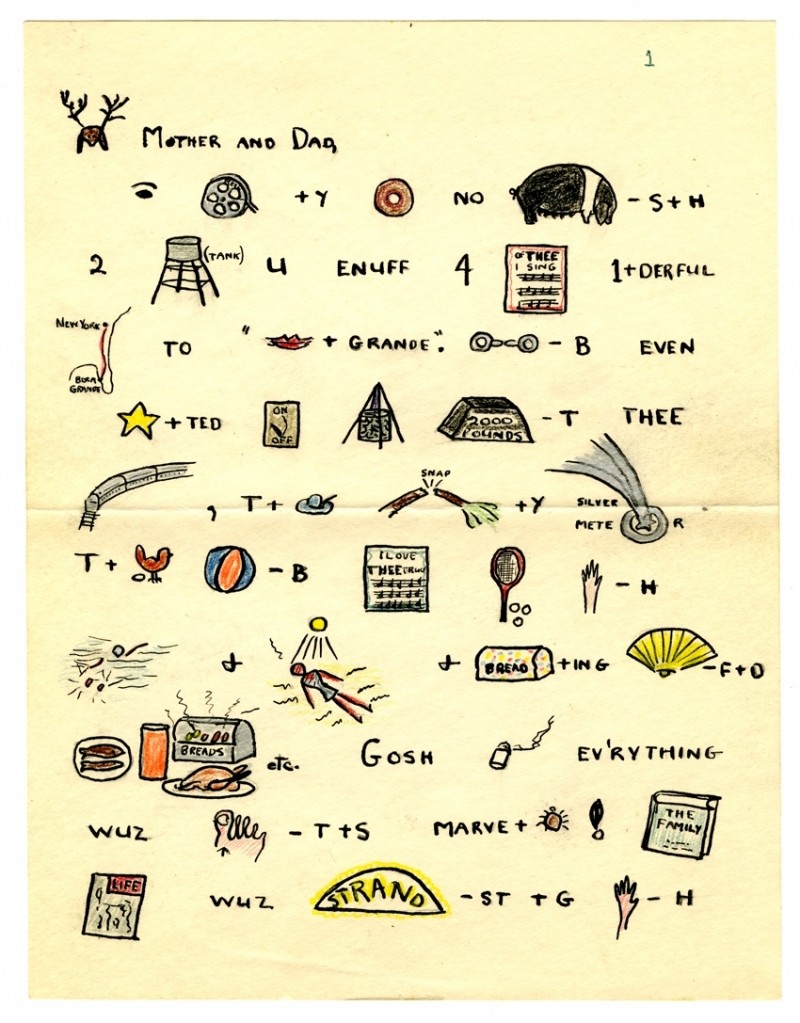 1
MOTHER AND DAD,
+Y NO - S + H
2 (TANK) U ENUFF 4 OF THEE I SING 1+DERFUL
NEW YORK BOCA GRANDE TO " + GRANDE". - B EVEN
+ TED ON OFF 2000 POUNDS - T THEE
, T + SNAP + Y SILVER METE R
T + - B I LOVE THEE TRULY - H
& & BREAD +ING - F + D
BREADS etc. GOSH EV'RYTHING
WUZ - T + S MARVE+ ! THE FAMILY
LIFE WUZ STRAND - ST + G - H